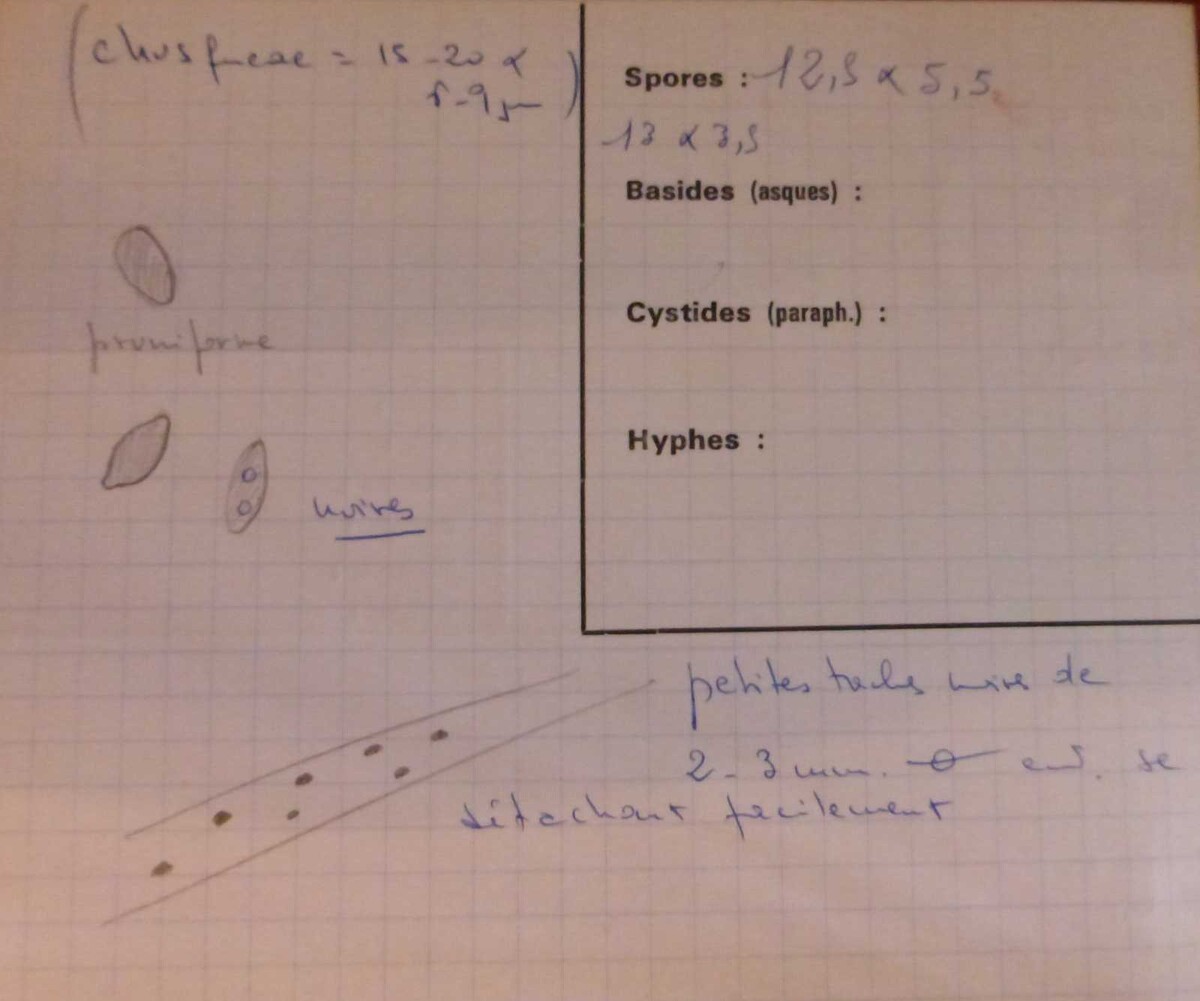 (chusqueae = 15-20 x
6-9 µm)
pruniforme
noires
Spores : 12,5 x 5,5
13 x 3,5
Basides (asques) :
Cystides (paraph.) :
Hyphes :
petites taches noires de
2-3 mm. se
détachant facilement